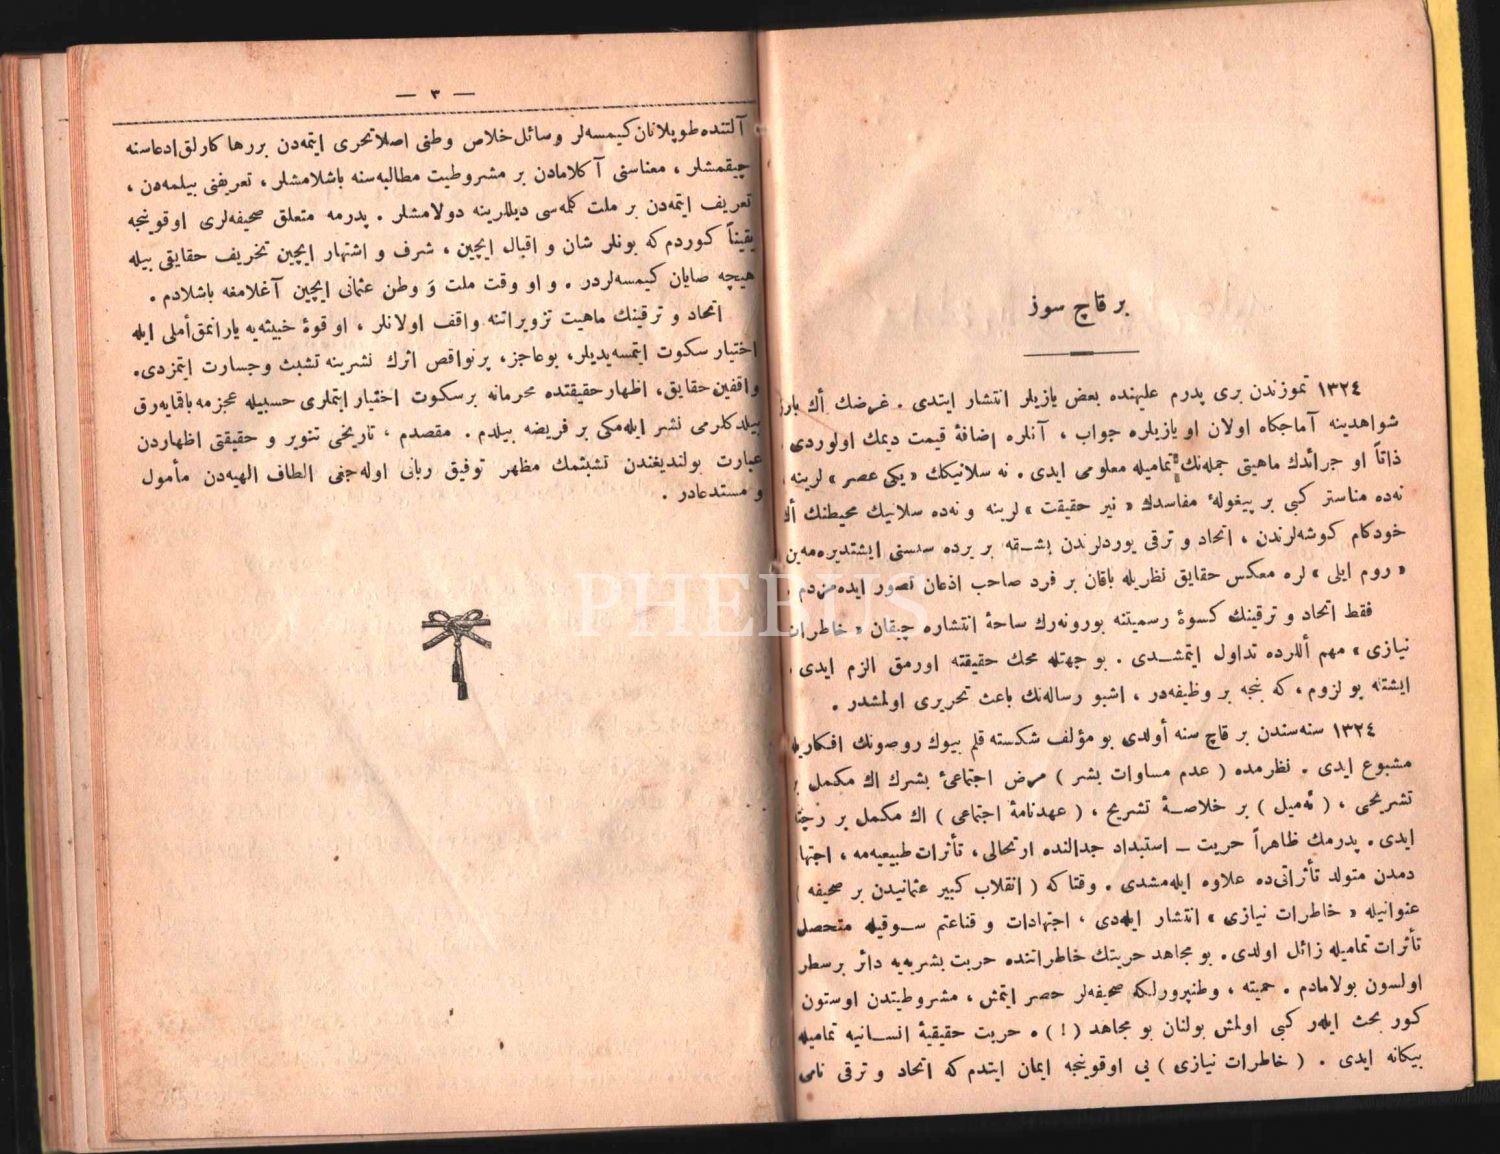 بر قاچ سوز
١٣٢٤ تموزندن بری پدرم علیهنده بعض یازیلر انتشار ایتدی . غرضك أك بارز
شواهدینه آماجكاه اولان او یازیلره جواب ، آنلره اضافۀ قیمت دیمك اولوردی .
ذاتاً او جرائدك ماهیتی جمله‌نك تمامیله معلومی ایدی . نه سلانیكك «یكی عصر» لرینه ،
نه‌ده مناستر كبی بر پیغولۀ مفاسدك « نیر حقیقت » لرینه و نه‌ده سلانیك محیطنك أك
خودكام كوشه‌لرندن ، اتحاد و ترقی یوردلرندن بشـقه بر یرده سسنی ایشتدیره‌مه‌ین
« روم ایلی » لره معكس حقایق نظریله باقان بر فرد صاحب اذعان تصور ایده‌مزدم .
فقط اتحاد و ترقینك كسوۀ رسمیتنه بورونه‌رك ساحۀ انتشاره چیقان « خاطرات
نیازی » مهم أللرده تداول ایتمشـدی . بو جهتله محك حقیقته اورمق الزم ایدی .
ایشته بو لزوم ، كه بنجه بر وظیفه‌در ، اشبو رساله‌نك باعث تحریری اولمشدر .
١٣٢٤ سنه‌سندن بر قاچ سنه أولدی بو مؤلف شكسته قلم بیوك روصونك افكاریله
مشبوع ایدی . نظرمده ( عدم مساوات بشر ) مرض اجتماعیٔ بشرك اك مكمل بر
تشریحی ، ( ئه‌میل ) بر خلاصـۀ تشریح ، ( عهدنامۀ اجتماعی ) اك مكمل بر رچته
ایدی . پدرمك ظاهراً حریت ــ استبداد جدالنده ارتحالی ، تأثرات طبیعیه‌مه ، اجتها
دمدن متولد تأثراتی‌ده علاوه ایله‌مشدی . وقتاكه ( انقلاب كبیر عثمانیدن بر صحیفه )
عنوانیله « خاطرات نیازی » انتشار ایله‌دی ، اجتهادات و قناعتم سـوقیله متحصل
تأثرات تمامیله زائل اولدی . بو مجاهد حریتك خاطراتنده حریت بشریه‌یه دائر بر سطر
اولسون بولامادم . حمیته ، وطنپرورلكه صحیفه‌لر حصر ایتمش ، مشروطیتدن اوستون
كور بحث ایلر كبی اولمش بولنان بو مجاهد (!) ه حریت حقیقیۀ انسـانیه تمامیله
بیكانه ایدی . ( خاطرات نیازی ) یی اوقوینجه ایمان ایتدم كه اتحاد و ترقی نامی
— ٣ —
آلتنده طوپلانان كیمسه‌لر وسائل خلاص وطنی اصلا تحری ایتمه‌دن بررها كارلق ادعاسنه
چیقمشلر ، معناسنی آكلامادن بر مشروطیت مطالبه‌سنه باشلامشلر ، تعریفنی بیلمه‌دن ،
تعریف ایتمه‌دن بر ملت كله‌سی دیللرینه دولامشلر . پدرمه متعلق صحیفه‌لری اوقوینجه
یقیناً كوردم كه بونلر شان و اقبال ایچین ، شرف و اشتهار ایچین تحریف حقایقی بیله
هیچه صایان كیمسه‌لردر . و او وقت ملت وَ وطن عثمانی ایچین آغلامغه باشلادم .
اتحاد و ترقینك ماهیت تزویراتنه واقف اولانلر ، او قوۀ خبیثه‌یه یارانمق أملی ایله
اختیار سكوت ایتمسه‌یدیلر ، بوعاجز ، پرنواقص اثرك نشرینه تشبث وجسارت ایتمزدی .
واقفین حقایق ، اظهار حقیقتده محرمانه برسكوت اختیار ایتملری حسبیله عجزمه باقمایه‌رق
بیلدكلرمی نشر ایله‌مكی بر فریضه بیلدم . مقصدم ، تاریخی تنویر و حقیقتی اظهاردن
عبارت بولندیغندن تشبثمك مظهر توفیق ربانی اوله‌جغی الطاف الهیه‌دن مأمول
و مستدعادر .
PHEBUS